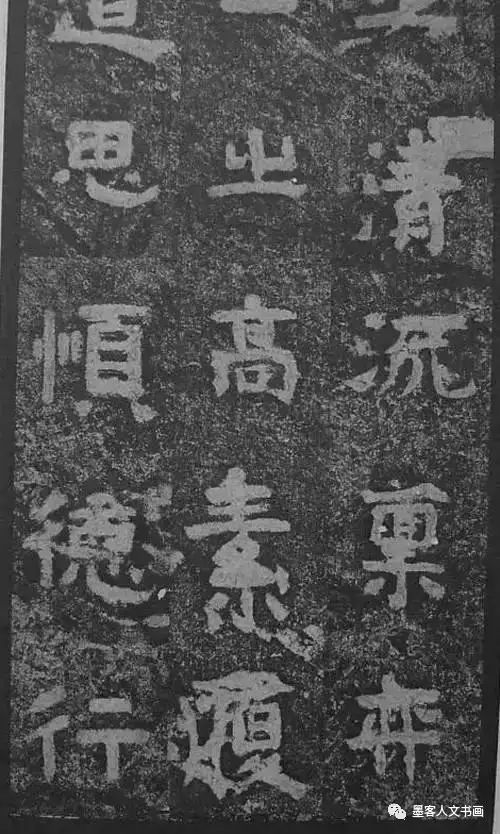 清流稟弈
之高素履
道思順德行
墨客人文书画